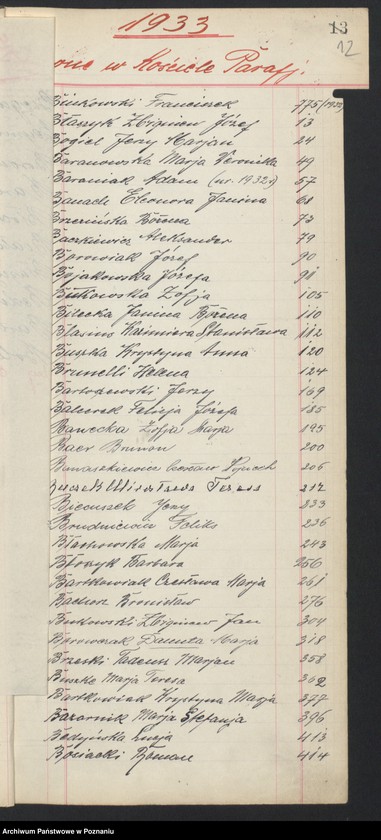 1933
13
12
one w Kościele Parafj.
Binkowski Franciszek 775 (1932)
Błaszyk Zbigniew Józef 13
Bogiel Jerzy Marjan 24
Baranowska Marja Weronika 49
Baraniak Adam (ur. 1932r) 57
Banach Eleonora Janina 68
Brzezińska Bożena 73
Baczkiewicz Aleksander 79
Borowiak Józef 90
Bojakowska Józefa 98
Butkowska Zofja 105
Bilecka Janina Bożena 110
Blasius Kazimiera Stanisława 112
Buszka Krystyna Anna 120
Brunelli Helena 124
Bartoszewski Jerzy 169
Balcerek Felicja Józefa 185
Bawecka Zofja Marja 195
Baer Brunon 200
Banaszkiewicz Czesław Wojciech 206
Teresa 212
Bieruszek Jerzy 233
Brudniewicz Feliks 236
Błachowska Marja 243
Błoszyk Barbara 256
Bartkowiak Czesława Marja 261
Bronisław 276
Bukowski Zbigniew Jan 304
Borowczak Danuta Marja 318
Brzeski Tadeusz Marjan 358
Buszke Marja Teresa 362
Bartkowiak Krystyna Marja 377
Bazarnik Marja Stefanja 396
Bedyńska Lucja 413
Bociacki Roman 414
Archiwum Państwowe w Poznaniu